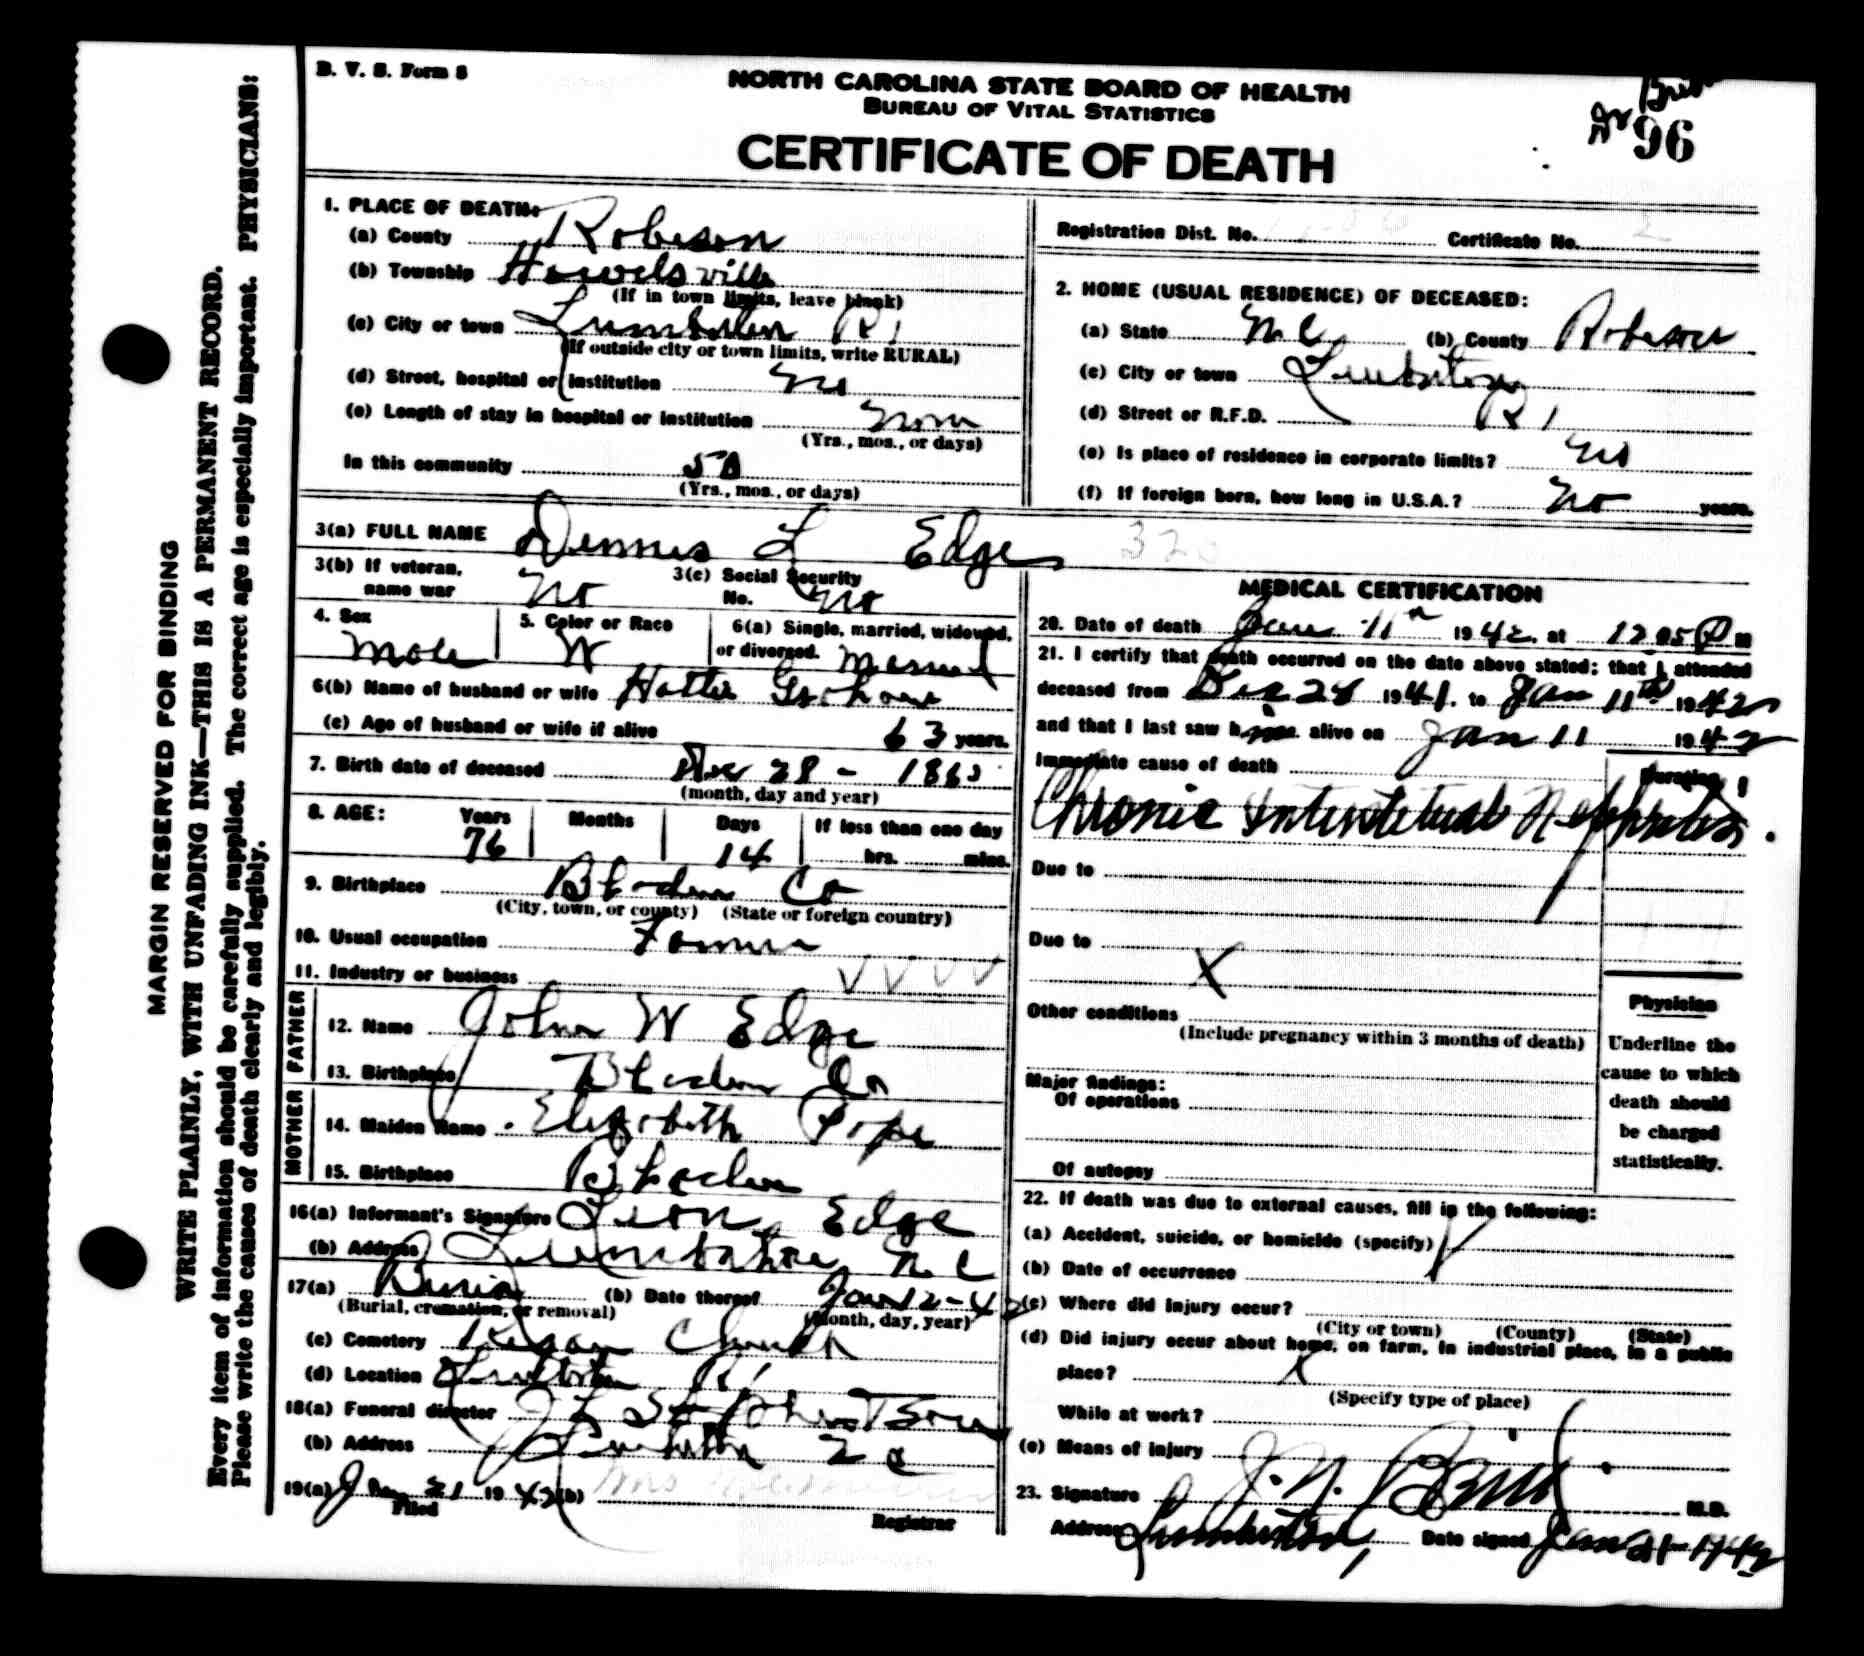 B. V. S. Form 8
NORTH CAROLINA STATE BOARD OF HEALTH
BUREAU OF VITAL STATISTICS
CERTIFICATE OF DEATH
96
MARGIN RESERVED FOR BINDING
WRITE PLAINLY, WITH UNFADING INK—THIS IS A PERMANENT RECORD.
Every item of information should be carefully supplied. The correct age is especially important. PHYSICIANS:
Please write the causes of death clearly and legibly.
1. PLACE OF DEATH:
(a) County Robeson
(b) Township Howelsville
(If in town limits, leave blank)
(c) City or town Lumberton R 1
(If outside city or town limits, write RURAL)
(d) Street, hospital or institution no
(e) Length of stay in hospital or institution none
(Yrs., mos., or days)
In this community 50
(Yrs., mos., or days)
Registration Dist. No. Certificate No. 2
2. HOME (USUAL RESIDENCE) OF DECEASED:
(a) State N C (b) County Robeson
(c) City or town Lumberton
(d) Street or R.F.D. R 1
(e) Is place of residence in corporate limits? no
(f) If foreign born, how long in U.S.A.? no years.
3(a) FULL NAME Dennis L Edge
3(b) If veteran, name war no
3(c) Social Security No. no
4. Sex male
5. Color or Race W
6(a) Single, married, widowed, or divorced. married
6(b) Name of husband or wife Hattie
(c) Age of husband or wife if alive 63 years.
7. Birth date of deceased Dec 28 - 186
(month, day and year)
8. AGE: Years Months Days If less than one day
76 14 hrs. mins.
9. Birthplace Bladen Co
(City, town, or county) (State or foreign country)
10. Usual occupation Farmer
11. Industry or business
FATHER
12. Name John W Edge
13. Birthplace Bladen Co
MOTHER
14. Maiden Name Elizabeth Pope
15. Birthplace Bladen
16(a) Informant's Signature Leon Edge
(b) Address Lumberton N C
17(a) Burial (b) Date thereof Jan 12-42
(Burial, cremation, or removal) (Month, day, year)
(c) Cemetery Church
(d) Location Lumberton R 1
18(a) Funeral director J L Stephens
(b) Address Lumberton N C
19(a) Jan 21 1942 (b) Mrs
Filed Registrar
MEDICAL CERTIFICATION
20. Date of death Jan 11th 1942. at 12.05 P M
21. I certify that death occurred on the date above stated; that I attended
deceased from Dec 28 1941. to Jan 11th 1942
and that I last saw him alive on Jan 11 1942
Immediate cause of death Duration
Chronic Interstitual Nephritis.
Due to
Due to
X
Other conditions
(Include pregnancy within 3 months of death)
Major findings:
Of operations
Of autopsy
Physician
Underline the
cause to which
death should
be charged
statistically.
22. If death was due to external causes, fill in the following:
(a) Accident, suicide, or homicide (specify)
(b) Date of occurrence
(c) Where did injury occur?
(City or town) (County) (State)
(d) Did injury occur about home, on farm, in industrial place, in a public
place? X
(Specify type of place)
While at work?
(e) Means of injury
23. Signature J. N. Britt M.D.
Address Lumberton, Date signed Jan 21-1942